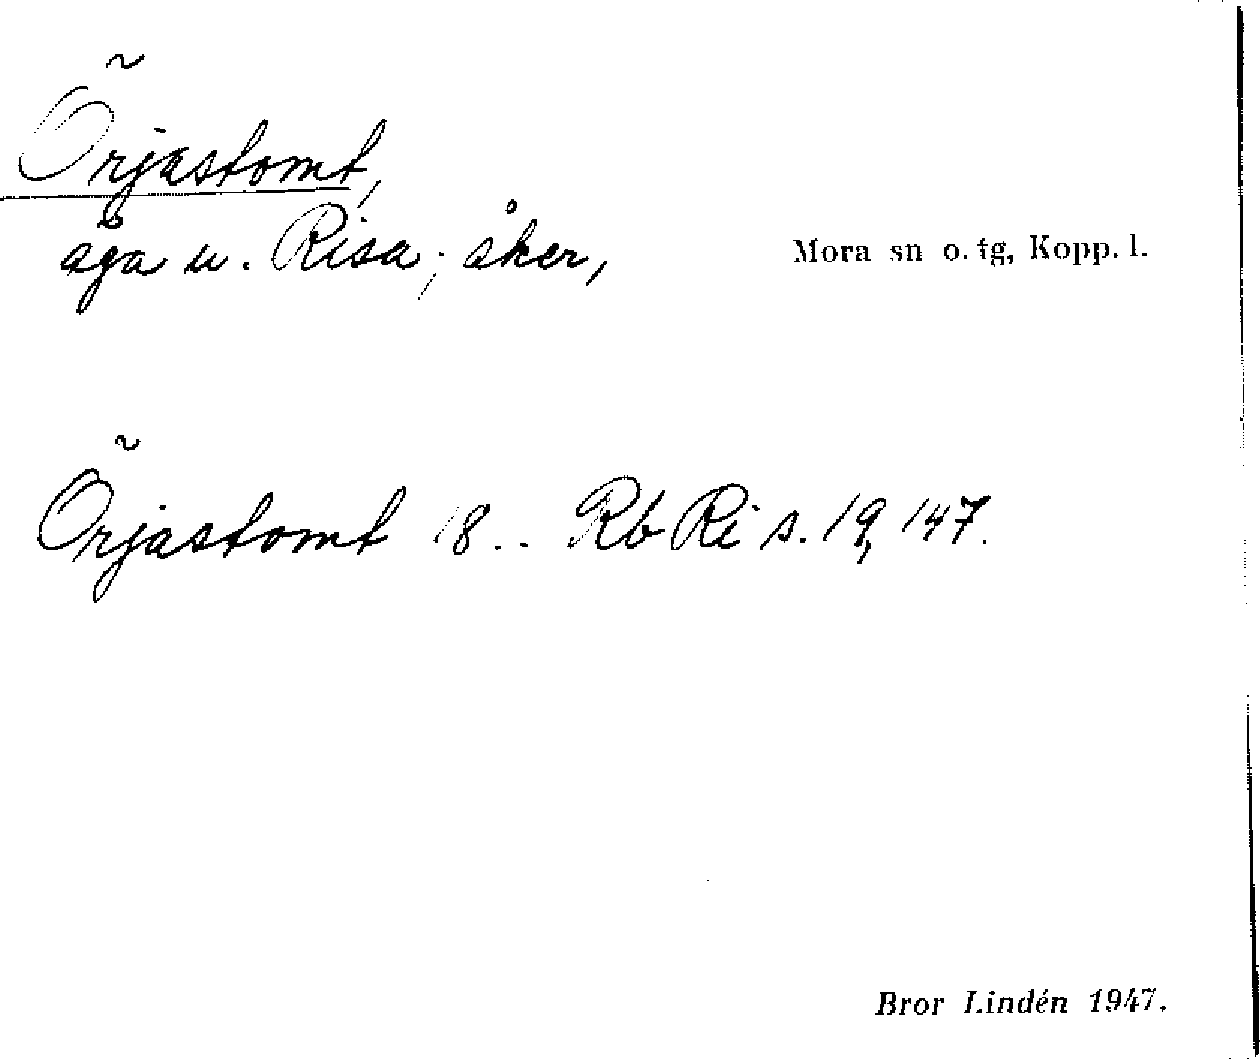 Örjastomt,
äga u. Risa; åker,
Mora sn o. tg, Kopp. l.
Örjastomt 18.. Rb Ri s. 19, 147.
Bror Lindén 1947.